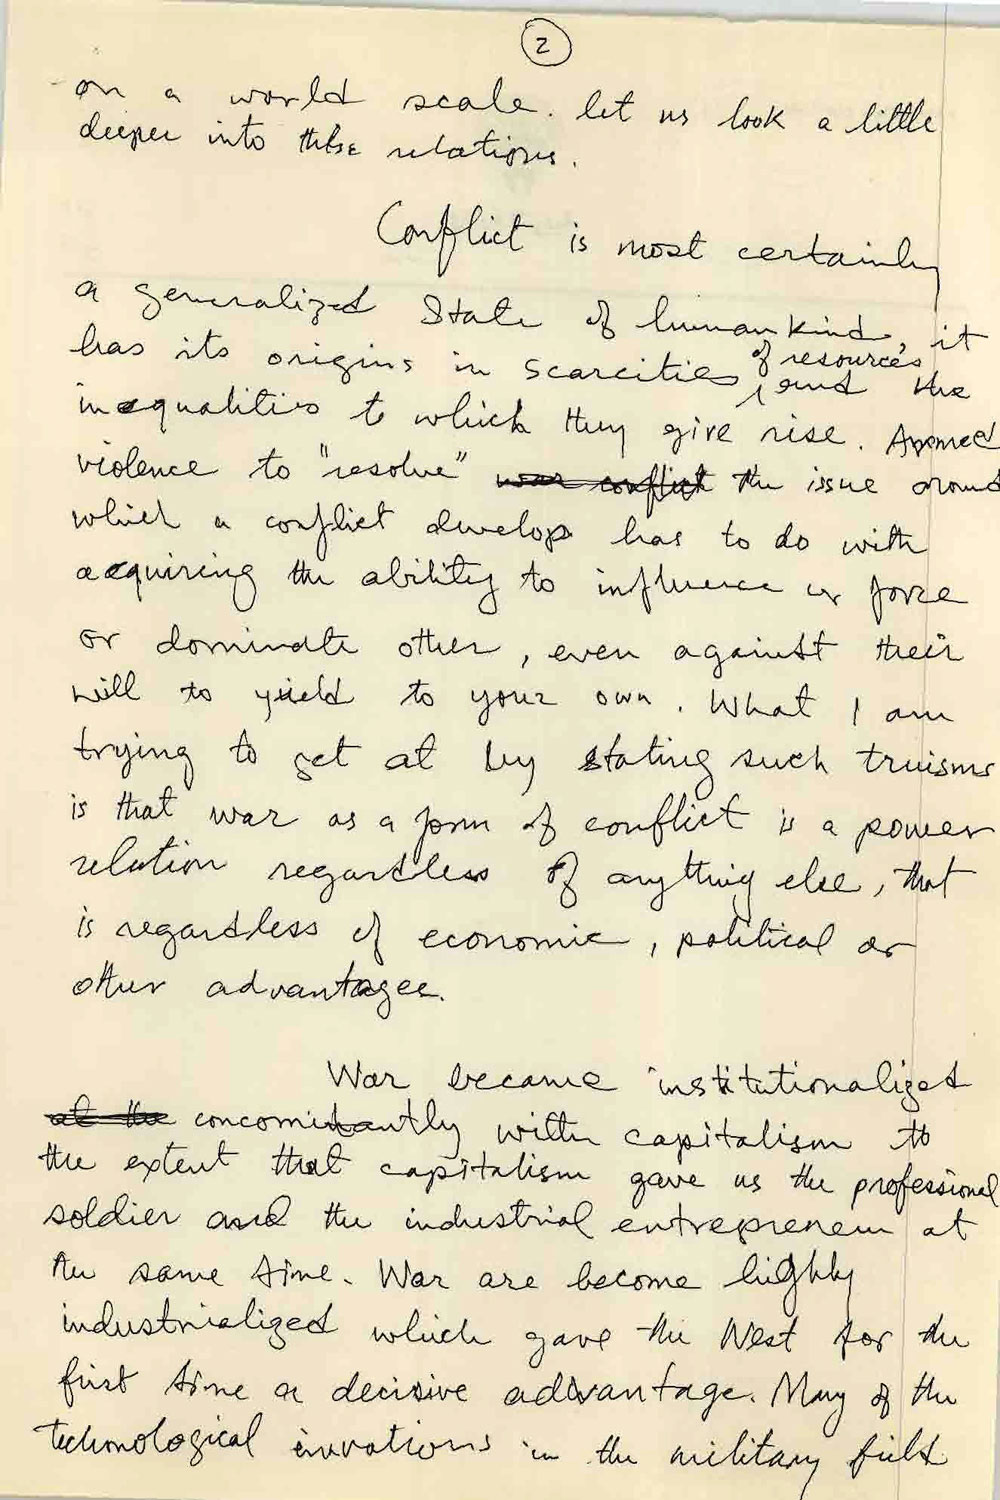 2
on a world scale. let us look a little
deeper into these relations.
Conflict is most certainly
a generalized State of human kind, it
has its origins in scarcities of resources, and the
inequalities to which they give rise. Armed
violence to "resolve" war conflict the issue around
which a conflict develop has to do with
acquiring the ability to influence or force
or dominate other, even against their
will to yield to your own. What I am
trying to get at by stating such truisms
is that war as a form of conflict is a power
relation regardless of anything else, that
is regardless of economic, political or
other advantages.
War became institutionalized
at the concomitantly with capitalism to
the extent that capitalism gave us the professional
soldier and the industrial entrepreneur at
the same time. War are become highly
industrialized which gave the West for the
first time a decisive advantage. Many of the
technological invvations in the military field